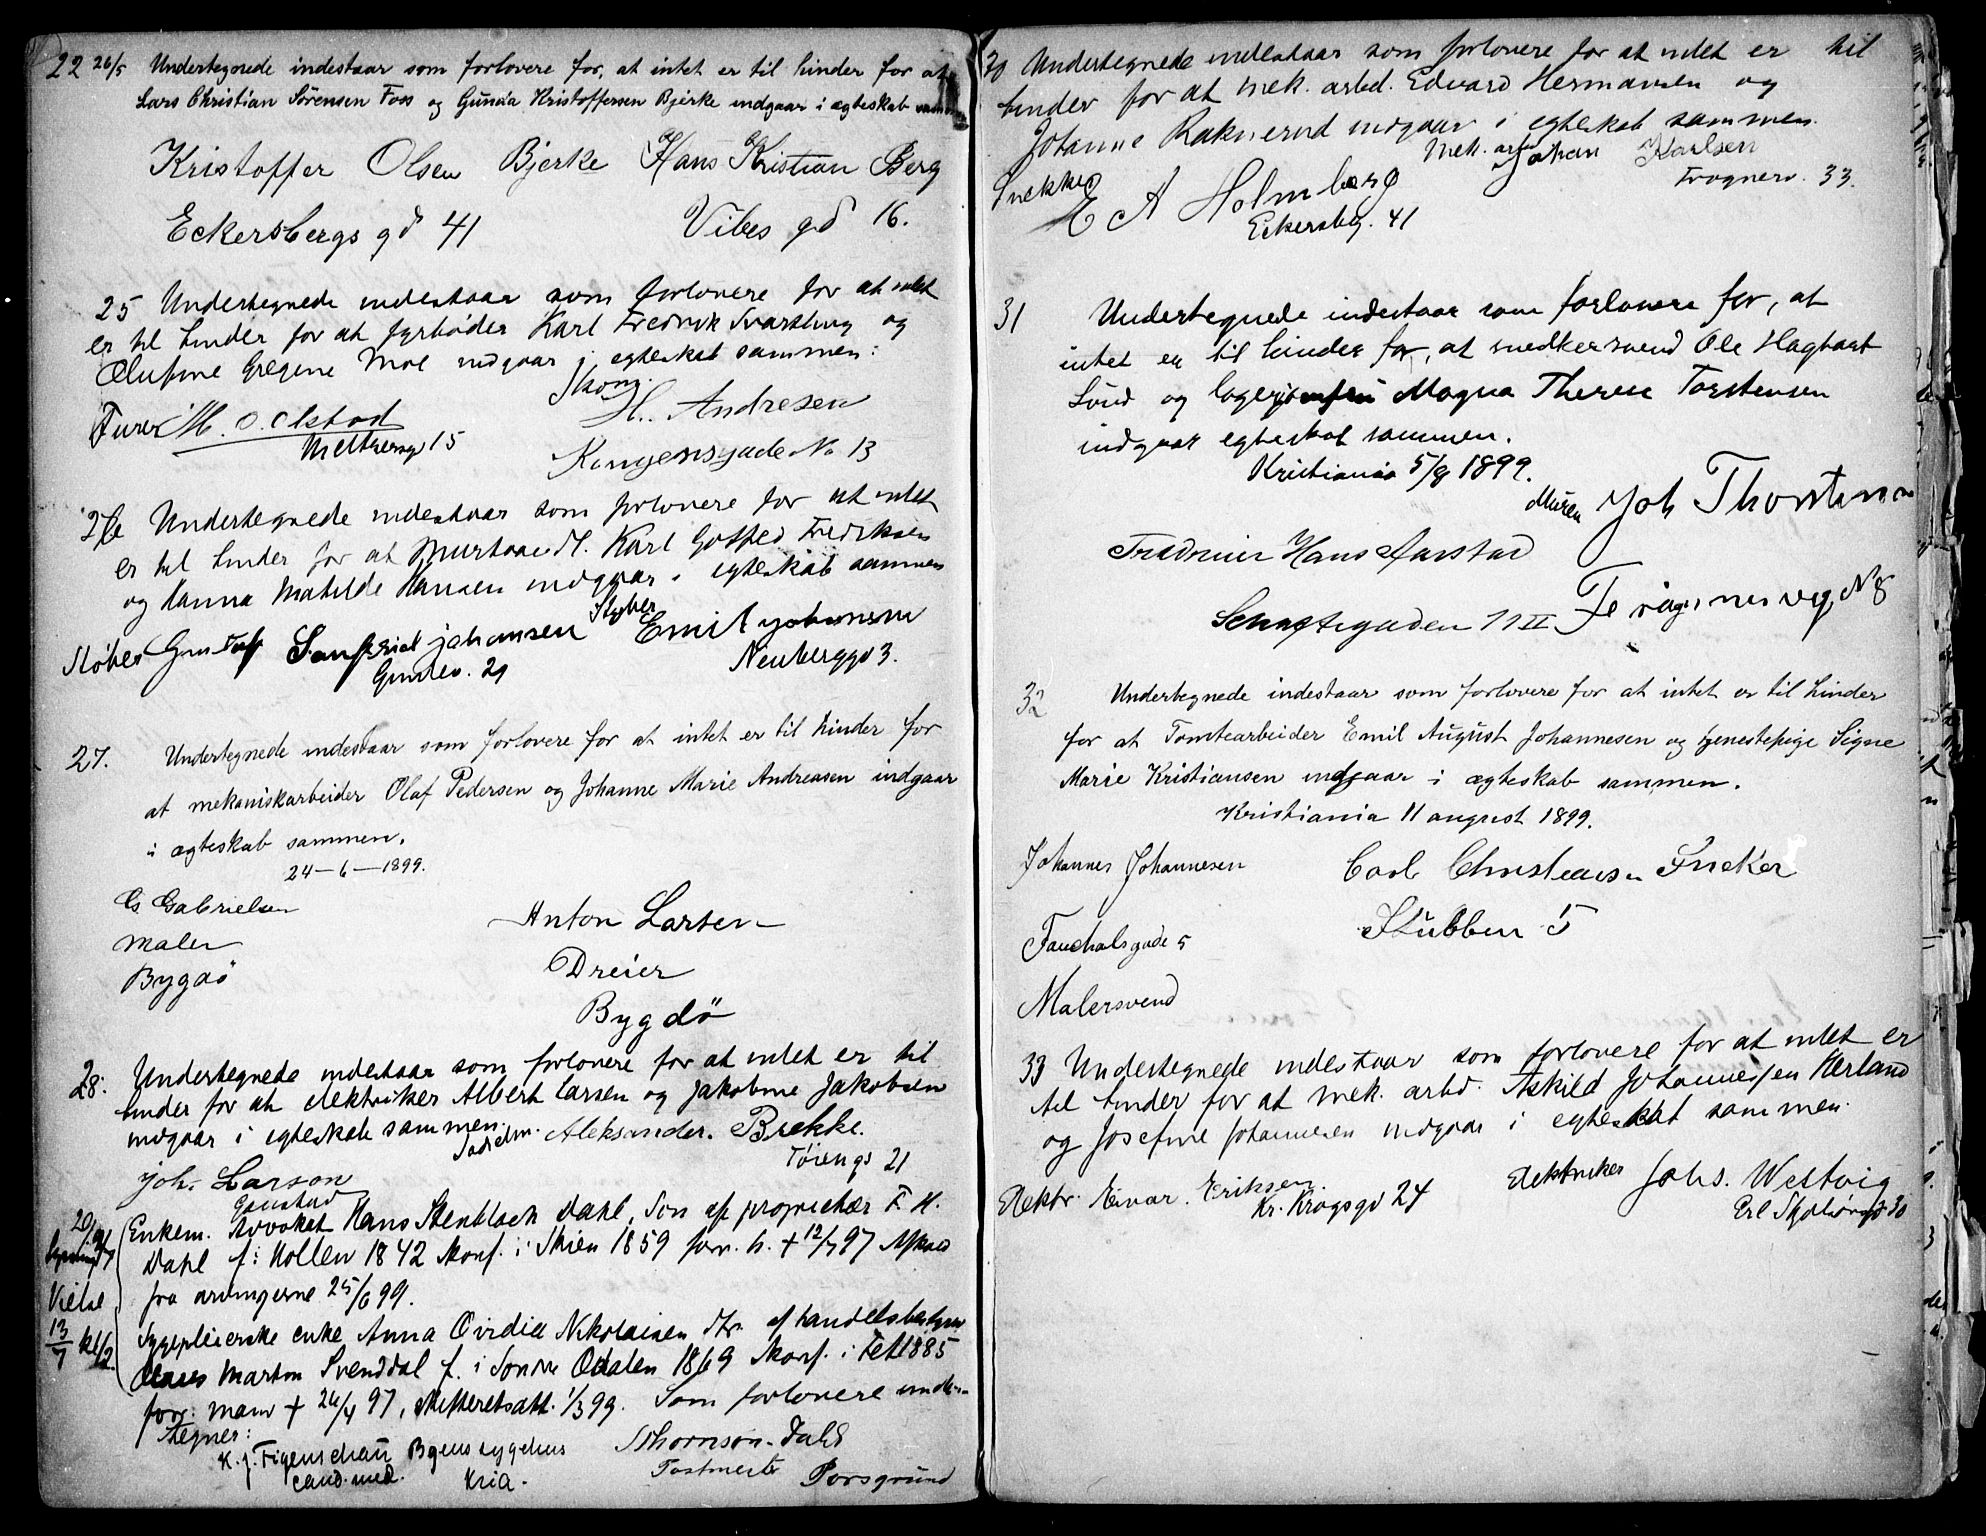 22 26/5 Undertegnede indestaar som forlovere for, at intet er til hinder for at
Lars Christian Sörensen Foss og Gunda Kristoffersen Bjerke indgaar i ægteskab sammen
Kristoffer Olsen Bjerke Hans Kristian Berg
Eckersbergs gd 41 Vibes gd 16.
25 Undertegnede indestaar som forlovere for at intet
er til hinder for at fyrbøder Karl Fredrik Svarstung og
Olufine Gregine Moe indgaar i egteskab sammen:
Furer M. O. Elstad Skom. H. Andresen
Meltzersg 15 Kongensgade No 13
26 Undertegnede indestaar som forlovere for at intet
er til hinder for at murhaandl. Karl Gotfred Fredriksen
og Hanna Matilde Hansen indgaar i egteskab sammen
Støber Gustaf Sanfrid johansen Støber Emil johansen
Gimlev. 29 Neuberggd 3.
27. Undertegnede indestaar som forlovere for at intet er til hinder for
at mekaniskarbeider Olaf Pedersen og Johanne Marie Andreasen indgaar
i ægteskab sammen.
24-6-1899.
G. Gabrielsen Anton Larsen
Maler Dreier
Bygdö Bygdö
28. Undertegnede indestaar som forlovere for at intet er til
hinder for at elektriker Albert Larsen og Jakobine Jakobsen
indgaar i egteskab sammen.
Joh. Larson Sadelm. Aleksander. Brekke.
Gaustad Tøiengs 21
Enkem. Advokat Hans Stenbloch Dahl, Søn af proprietær F. H.
Dahl f: Hollen 1842 Konf. i Skien 1859 forr. h. + 12/7 97 Afkald
fra arvingerne 25/6 99.
Vielse 13/7 kl 1/2
Sygepleierske enke Anna Ovidia Nikolaisen dtr. af handelsbestyrer
Claus Martin Svenddal f. i Søndre Odalen 1869 Konf. i Fet 1885
forr: mand + 26/4 97, Skifteretsatt. 1/3 99. Som forlovere under-
tegner:
K. J. Figenschau Byens sygehus Thomson-Dahl
cand. med. Kria. Postmester Porsgrund
30 Undertegnede indestaar som forlovere for at intet er til
hinder for at mek. arbd. Edvard Hermansen og
Johanne Raknerud indgaar i egteskab sammen.
Snekker E A Holmberg Mek. arb. Johan Karlsen
Eckersbg. 41 Frognerv. 33.
31 Undertegnede indestaar som forlovere for, at
intet er til hinder for, at snedkersvend Ole Hagbart
Lund og logerjomfru Magna Therese Torstensen
indgaar egteskab sammen.
Kristiania 5/8 1899.
Murer Joh Thorstensen
Hans Aarstad
Schaftegaden 11 II Frognervg. N 8
32 Undertegnede indestaar som forlovere for at intet er til hinder
for at Tomtearbeider Emil August Johannesen og tjenestepige Signe
Marie Kristiansen indgaar i ægteskab sammen.
Kristiania 11 august 1899.
Johannes Johannesen Carl Christiansen Sneker
Fauchalsgade 5 Stubben 5
Malersvend
33 Undertegnede indestaar som forlovere for at intet er
til hinder for at mek. arbd. Askild Johannessen Herland
og Josefine Johannesen indgaar i egteskab sammen.
Elektr. Einar. Eriksen. Elektriker Johs. Westvig
Kr. Krogsgd 24 Erl Skjolsonsgd 30